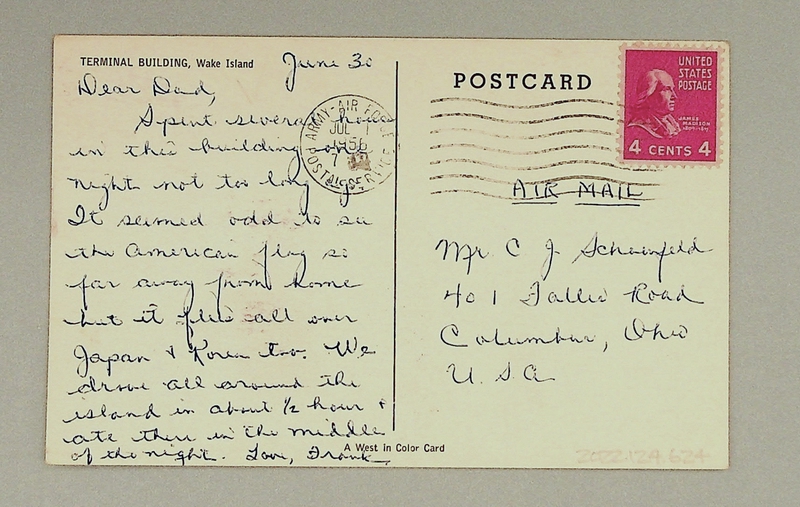 TERMINAL BUILDING, Wake Island
June 30
Dear Dad,
Spent several hours
in this building one
night not too long ago.
It seemed odd to see
the American flag so
far away from home
but it flies all over
Japan & Korea too. We
drove all around the
island in about 1/2 hour &
ate there in the middle
of the night. Love, Frank
A West in Color Card
ARMY-AIR FORCE
POSTAL SERVICE
JUL 1
1956
POSTCARD
UNITED
STATES
POSTAGE
JAMES
MADISON
4 CENTS 4
AIR MAIL
Mr C J
401 Road
Columbus, Ohio
U.S.A
2022.124.624